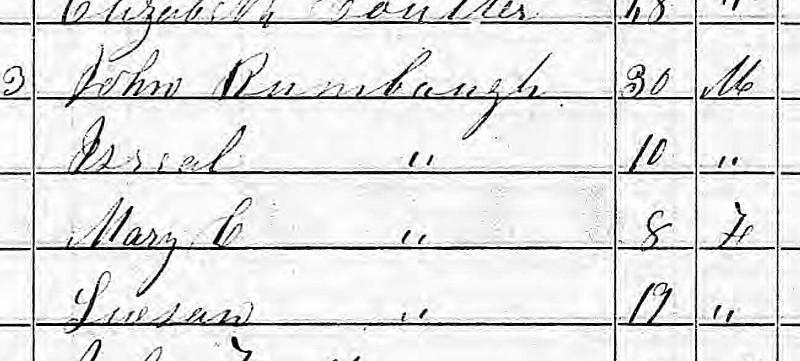 Elizabeth Coulter 48 "
3 John Rumbaugh 30 M
Isreal " 10 "
Mary C " 8 F
Susan " 19 "